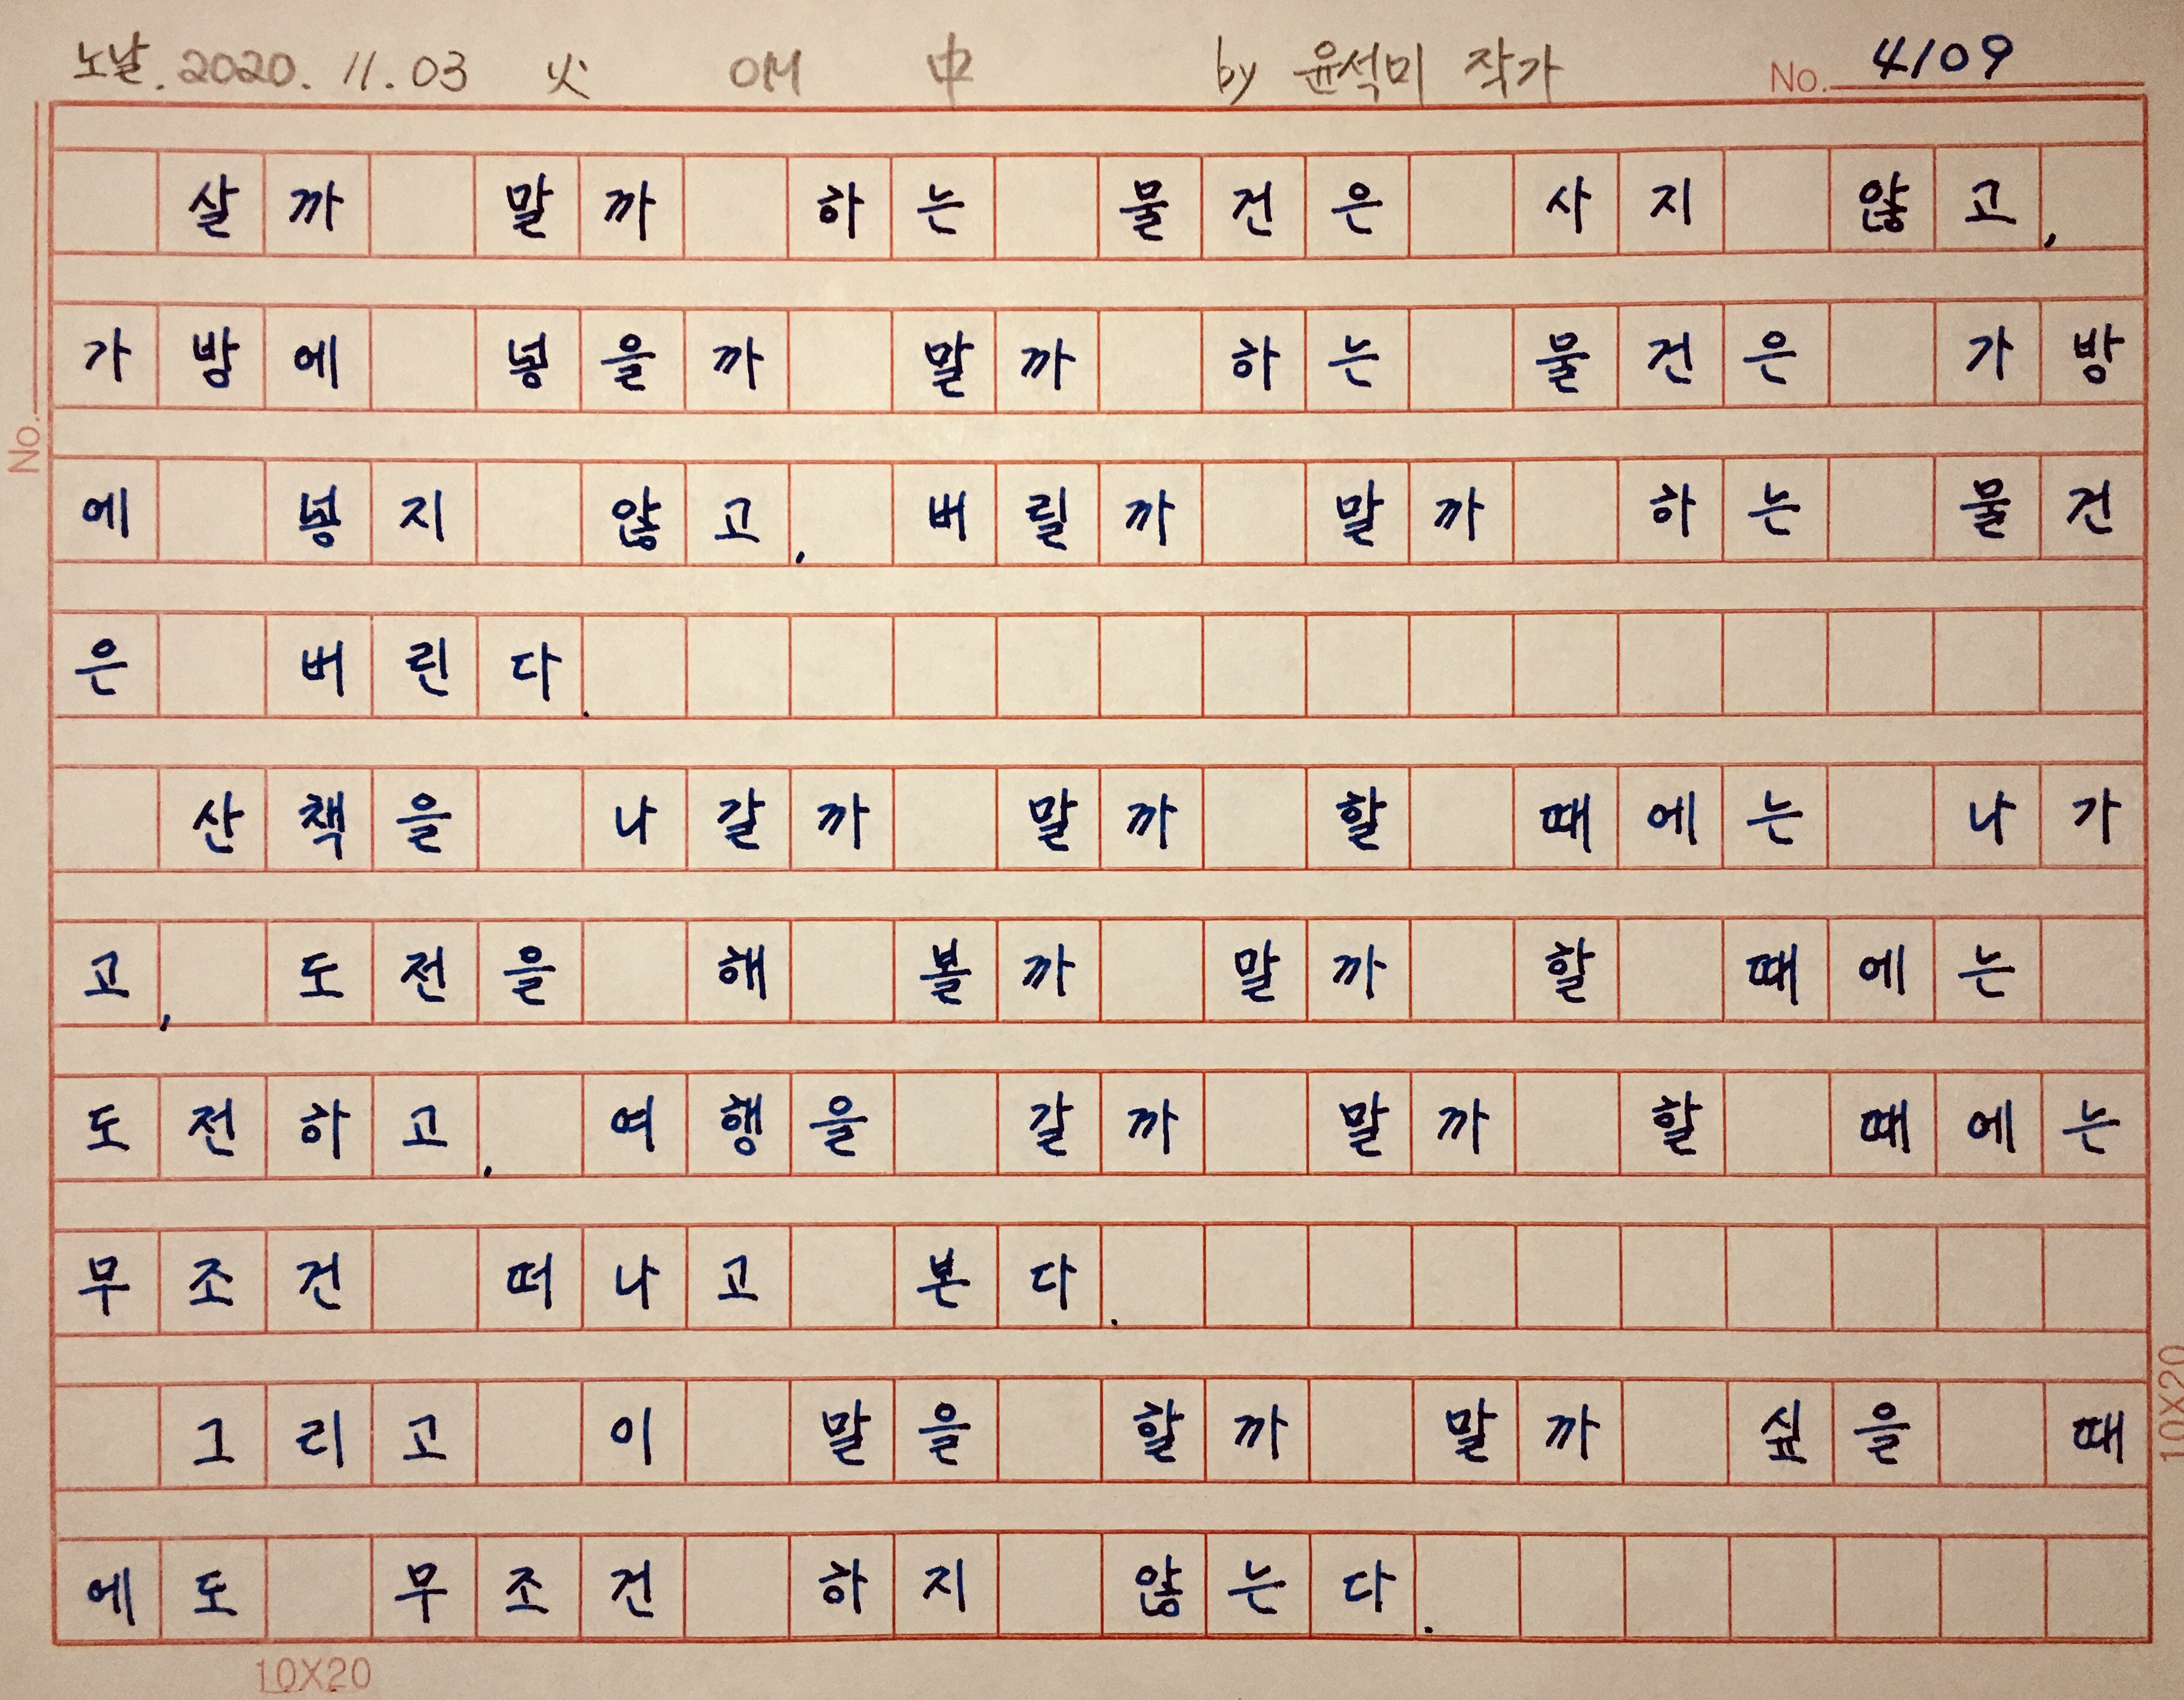 노날. 2020. 11. 03 火 OM 中 by 윤석미 작가 No. 4109
살까 말까 하는 물건은 사지 않고,
가방에 넣을까 말까 하는 물건은 가방
에 넣지 않고, 버릴까 말까 하는 물건
은 버린다.
산책을 나갈까 말까 할 때에는 나가
고, 도전을 해 볼까 말까 할 때에는
도전하고, 여행을 갈까 말까 할 때에는
무조건 떠나고 본다.
그리고 이 말을 할까 말까 싶을 때
에도 무조건 하지 않는다.
No.
10X20
10X20